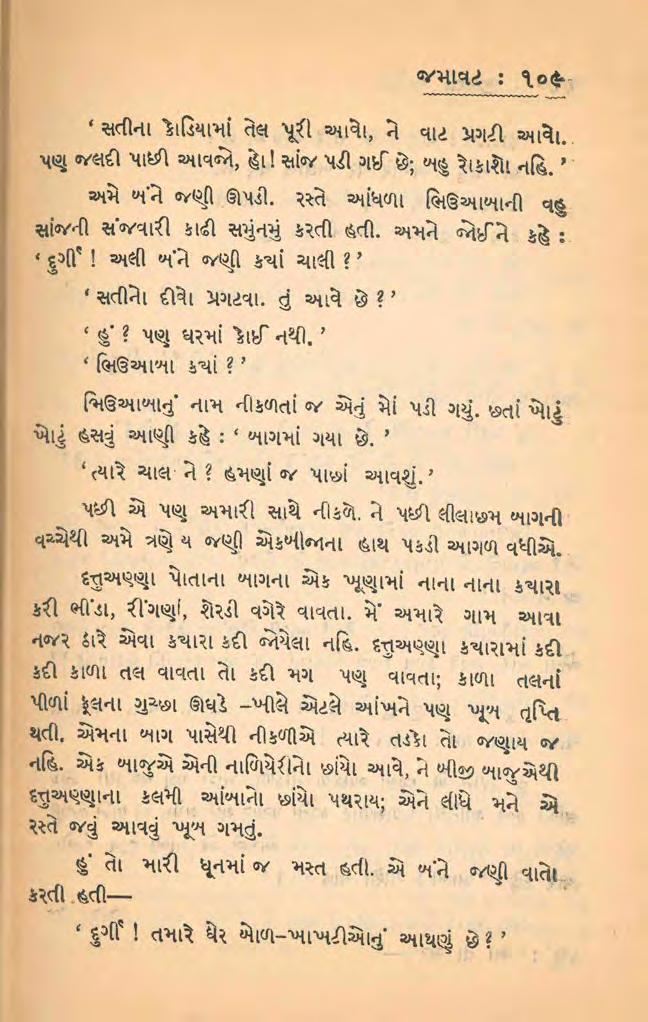 જમાવટ : ૧૦૯
‘ સતીના કોડિયામાં તેલ પૂરી આવો, ને વાટ પ્રગટી આવો.
પણ જલદી પાછી આવજો, હો! સાંજ પડી ગઈ છે; બહુ રોકાશો નહિ. ’
અમે બંને જણી ઊપડી. રસ્તે આંધળા ભિઉઆબાની વહુ
સાંજની સંજવારી કાઢી સમુંનમું કરતી હતી. અમને જોઈને કહે :
‘ દુર્ગી ! અલી બંને જણી કયાં ચાલી ? ’
‘ સતીનો દીવો પ્રગટવા. તું આવે છે ? ’
‘ હું ? પણ ઘરમાં કોઈ નથી. ’
‘ ભિઉઆબા કયાં ? ’
ભિઉઆબાનું નામ નીકળતાં જ એનું મોં પડી ગયું. છતાં ખોટું
ખોટું હસવું આણી કહે : ‘ બાગમાં ગયા છે. ’
‘ ત્યારે ચાલ ને ? હમણાં જ પાછાં આવશું. ’
પછી એ પણ અમારી સાથે નીકળે. ને પછી લીલાછમ બાગની
વચ્ચેથી અમે ત્રણે ય જણી એકબીજાના હાથ પકડી આગળ વધીએ.
દત્તુઅણ્ણા પોતાના બાગના એક ખૂણામાં નાના નાના કયારા
કરી ભીંડા, રીંગણાં, શેરડી વગેરે વાવતા. મેં અમારે ગામ આવા
નજર ઠારે એવા કયારા કદી જોયેલા નહિ. દત્તુઅણ્ણા કયારામાં કદી
કદી કાળા તલ વાવતા તો કદી મગ પણ વાવતા; કાળા તલનાં
પીળાં ફૂલના ગુચ્છા ઊઘડે –ખીલે એટલે આંખને પણ ખૂબ તૃપ્તિ
થતી. એમના બાગ પાસેથી નીકળીએ ત્યારે તડકો તો જણાય જ
નહિ. એક બાજુએ એની નાળિયેરીનો છાંયો આવે, ને બીજી બાજુએથી
દત્તુઅણ્ણાના કલમી આંબાનો છાંયો પથરાય; એને લીધે મને એ
રસ્તે જવું આવવું ખૂબ ગમતું.
હું તો મારી ધૂનમાં જ મસ્ત હતી. એ બંને જણી વાતો
કરતી હતી—
‘ દુર્ગી ! તમારે ઘેર બોળ–ખાખટીઓનું આથણું છે ? ’